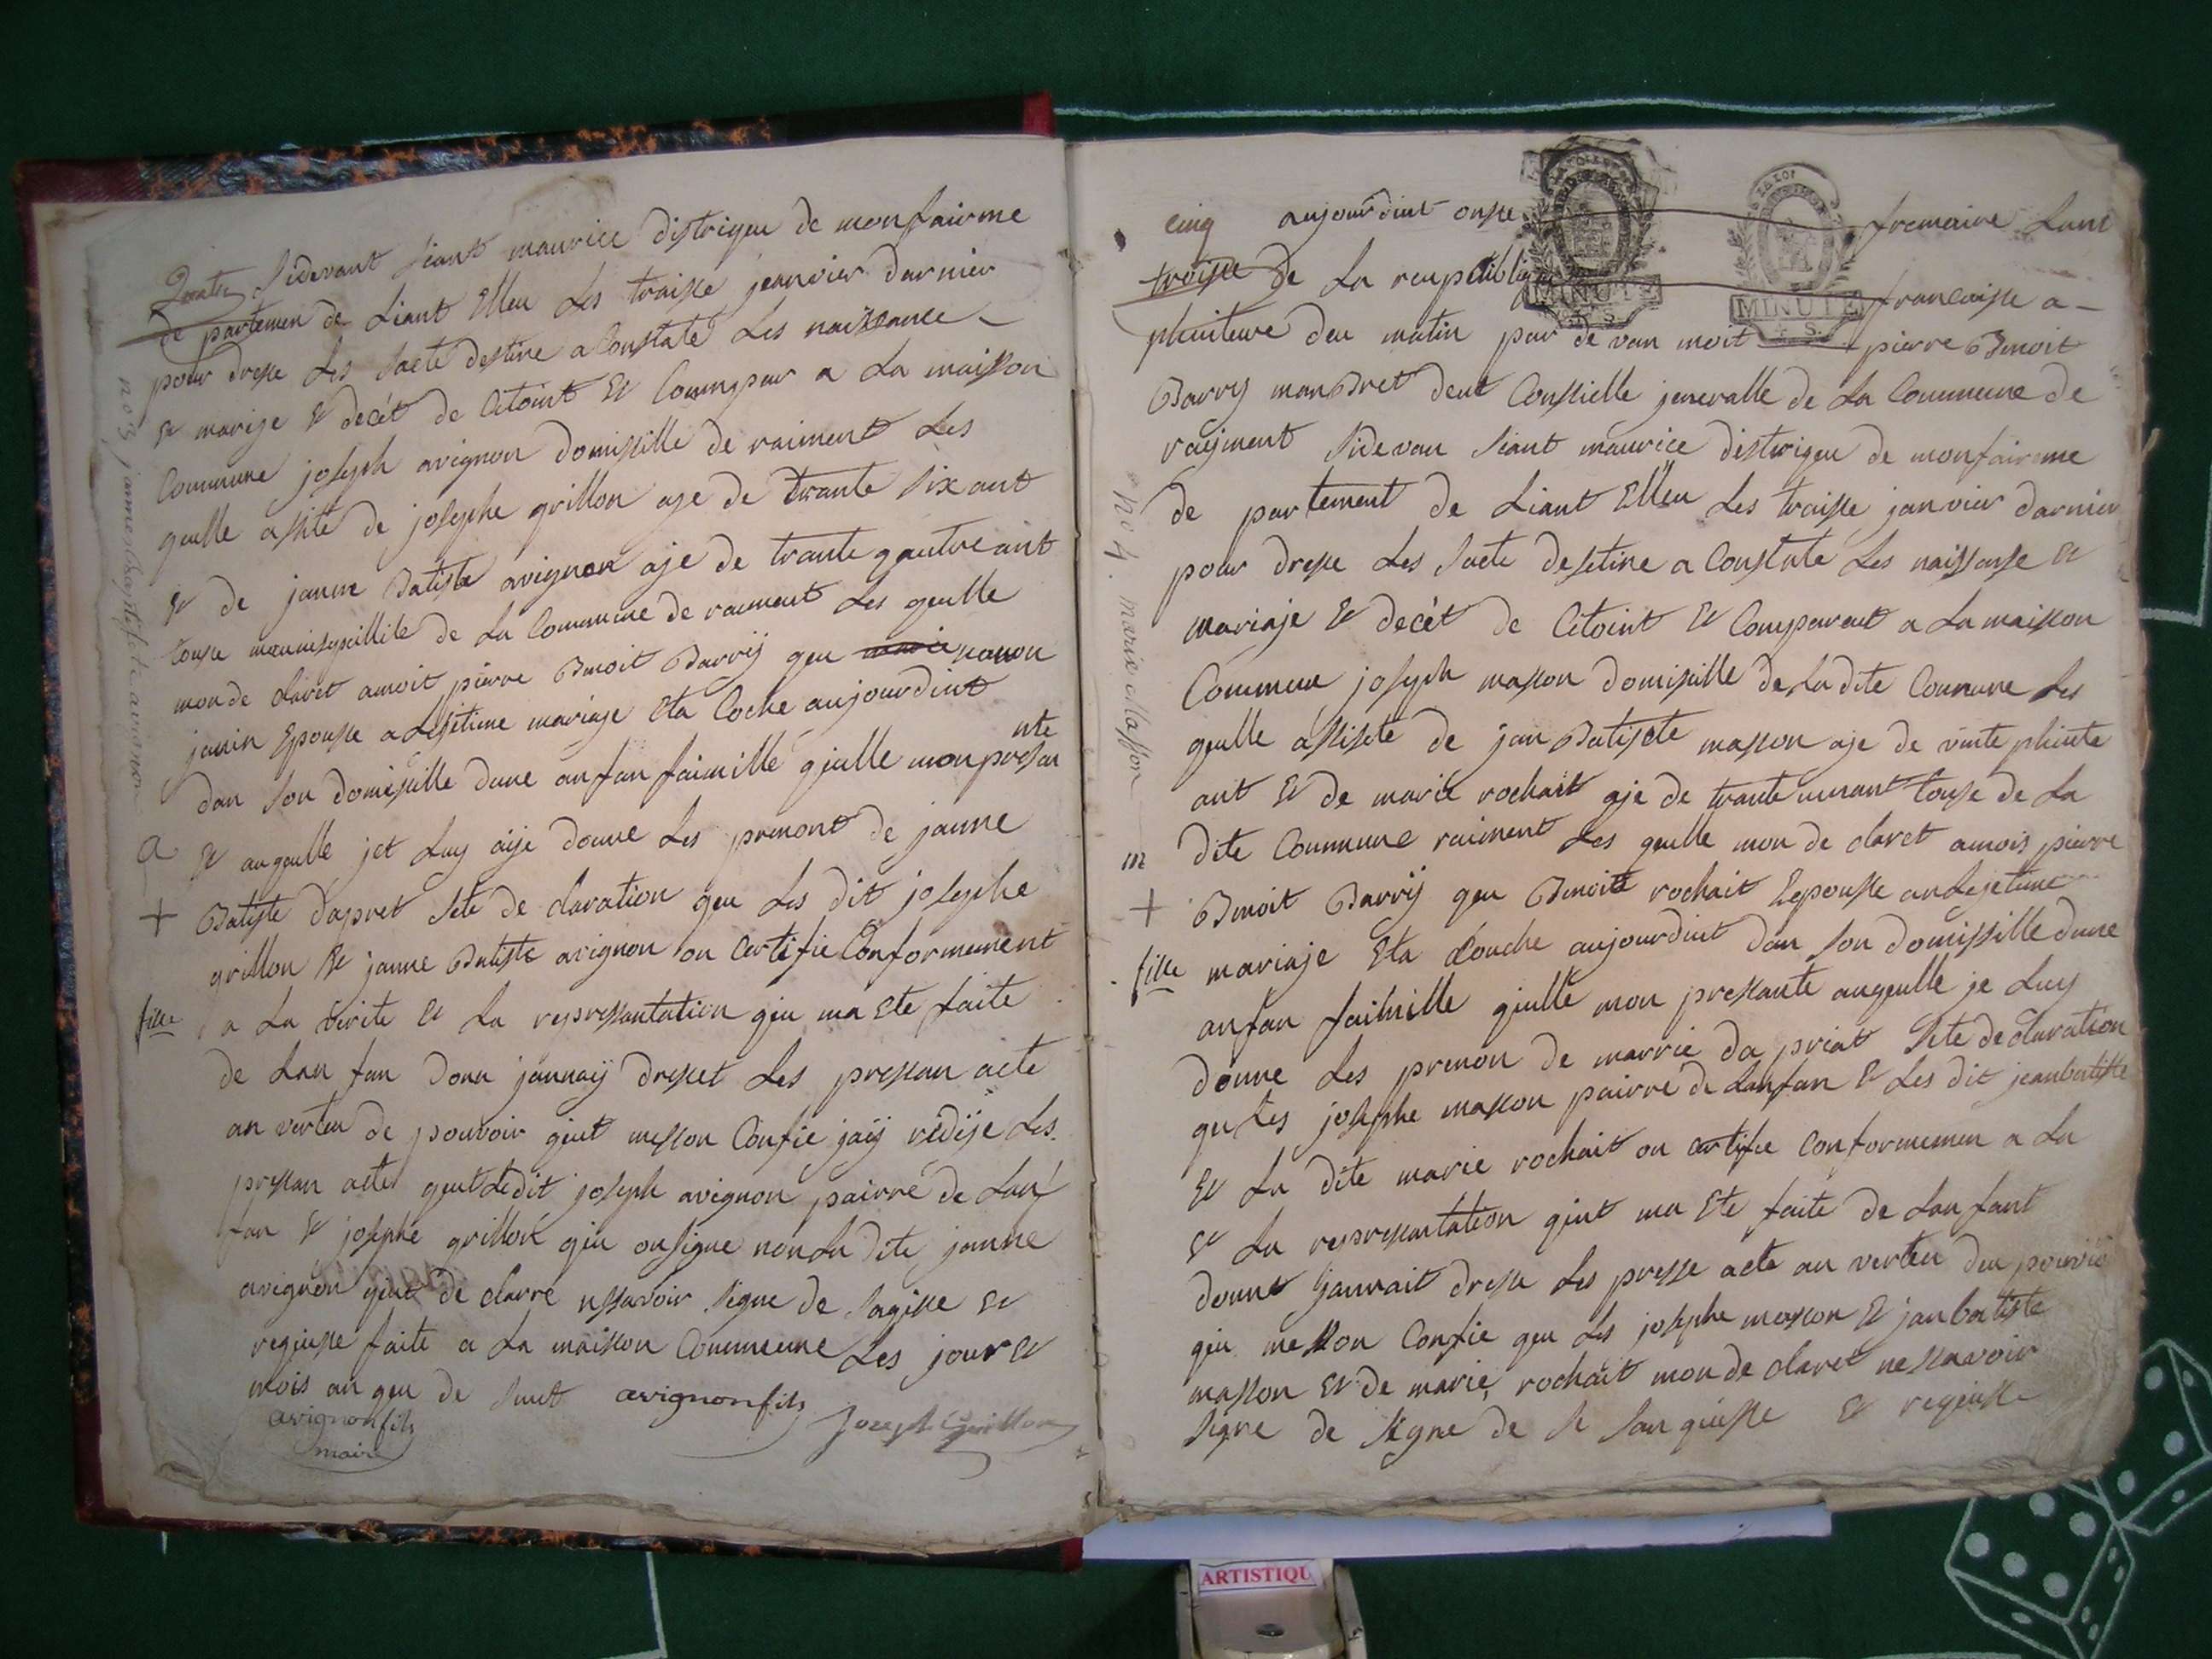 Quatre sidevant siant maurice distriqeu de monfairme
de partemen de Liant Elleu les traisse jeanvier darnier
pour dresse les sacte destine a Constate les naissance
Et marije Et decét de Citoint Et Comepar a La maisson
Commune joseph avignon domisille de raiment Les
qeulle assite de josephe grillon aje de trante six ant
Et de janne Batiste avignon aje de trante qautre ant
touse meunisypallite de La Commune de raiment Les qeulle
mon de claret amoit pierre Benoit Barrÿ qeu nanon
janin Epousse a Lesitime mariaje Eta Coche aujourdint
dan son domisille dune anfan faimille qieulle mon presan
nte
a
Et auqeulle jet Luy aije donne Les prenont de janne
+
Batiste dapret sete de claration qeu Les dit josephe
grillon Et janne Batiste avignon on Certifie Conformement
fille
a La verite Et La represantation qeu ma Ete faite
de Lan fan donn jannaÿ dresset Les pressan acte
an verteu de pouvoir qeut messon Confie jaÿ redije Les
pressan acte qeut Ledit joseph avignon pairre de Lan
fan Et josephe grillon qeu on signe non La dite janne
avignon qeut de clarre nssavoir signe de sagisse Et
reqeisse faite a La maisson Commeune Les jour Et
mois an qeu de sut avignon fils
avignon fils
maire
Joseph Grillon
no 3 janne baptiste avignon
cinq aujourdint onsse fremaire Lant
troisse de La reupeublique francaisse a
phuiteure deu matin par de van moit pierre Benoit
Barry manbret deut Conssielle jeneralle de La Commeune de
raijment sidevan siant maurice distriqeu de monfairme
de partement de Liant Elleu Les traisse janvier darnier
pour dresse Les sacte desetine a Constate Les naissanse Et
mariaje Et decét de Citoint Et Comparent a La maisson
Commeun joseph masson domisille de La dite Commune Les
qeulle assisete de jan Batisete masson aje de vinte phuite
ant Et de marie rochait aje de trante unant touse de La
m
dite Commune raiment Les qeulle mon de claret amois pierre
+
Benoit Barrÿ qeu Benoite rochait Lepousse anLejetime
fille
mariaje Eta Couche aujourdint dan son domissille dune
anfan faimille qieulle mon pressante auqeulle je Luy
donne Les prenon de marrie da priat sete declaration
qu Les josephe masson pairre de Lanfan Et Les dit jeanbatiste
Et La dite marie rochait on certifie conformemen a La
Et La represantation qeut ma Ete faite de Lan fant
donnt jauvait dresse Les presse acte an verteu deu pouvio
qeu messon Confie qeu Les josephe masson Et janbatiste
masson Et de marie rochait mon de claret nessavoir
signe de signe de se san qeisse Et reqeisse
no 4. marie Masson
LA LOI
MINUTE
4 S.
LA LOI
MINUTE
4 S.
ARTISTIQU